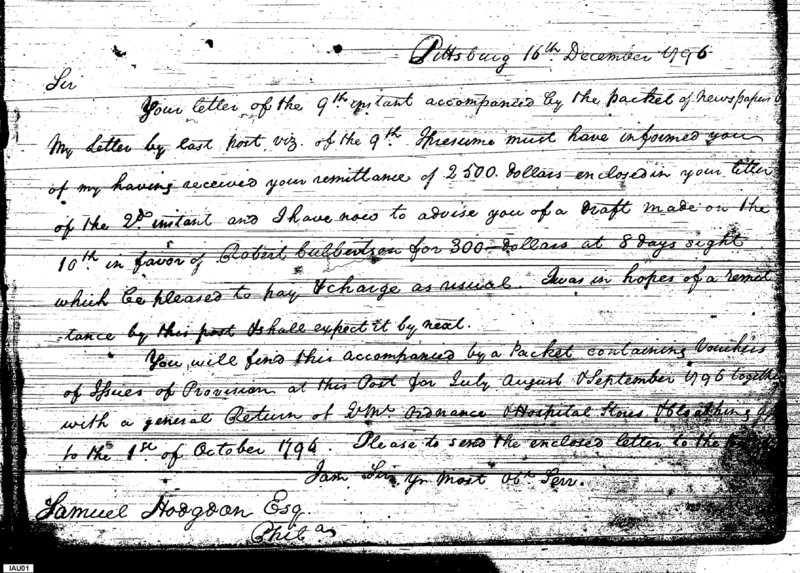 Pittsburg 16th December 1796
Sir
Your letter of the 9th instant accompanied by the packet of newspapers &
My Letter by last post viz. of the 9th I presume must have informed you
of my having received your remittance of 2500. dollars enclosed in your letter
of the 2d instant and I have now to advise you of a draft made on the
10th in favor of Robert Culbertson for 300 dollars at 8 days sight
which be pleased to pay & charge as usual. I was in hopes of a remit
tance by this post & shall expect it by next.
You will find this accompanied by a Packet containing Vouchers
of Issues of Provision at this Post for July August & September 1796 together
with a general Return of Qr Mr Ordnance & Hospital Stores & Cloathing
to the 1st of October 1796. Please to send the enclosed letter to the
I am Sir yr most obt Serv.
Samuel Hodgdon Esq.
Phila
IAU01